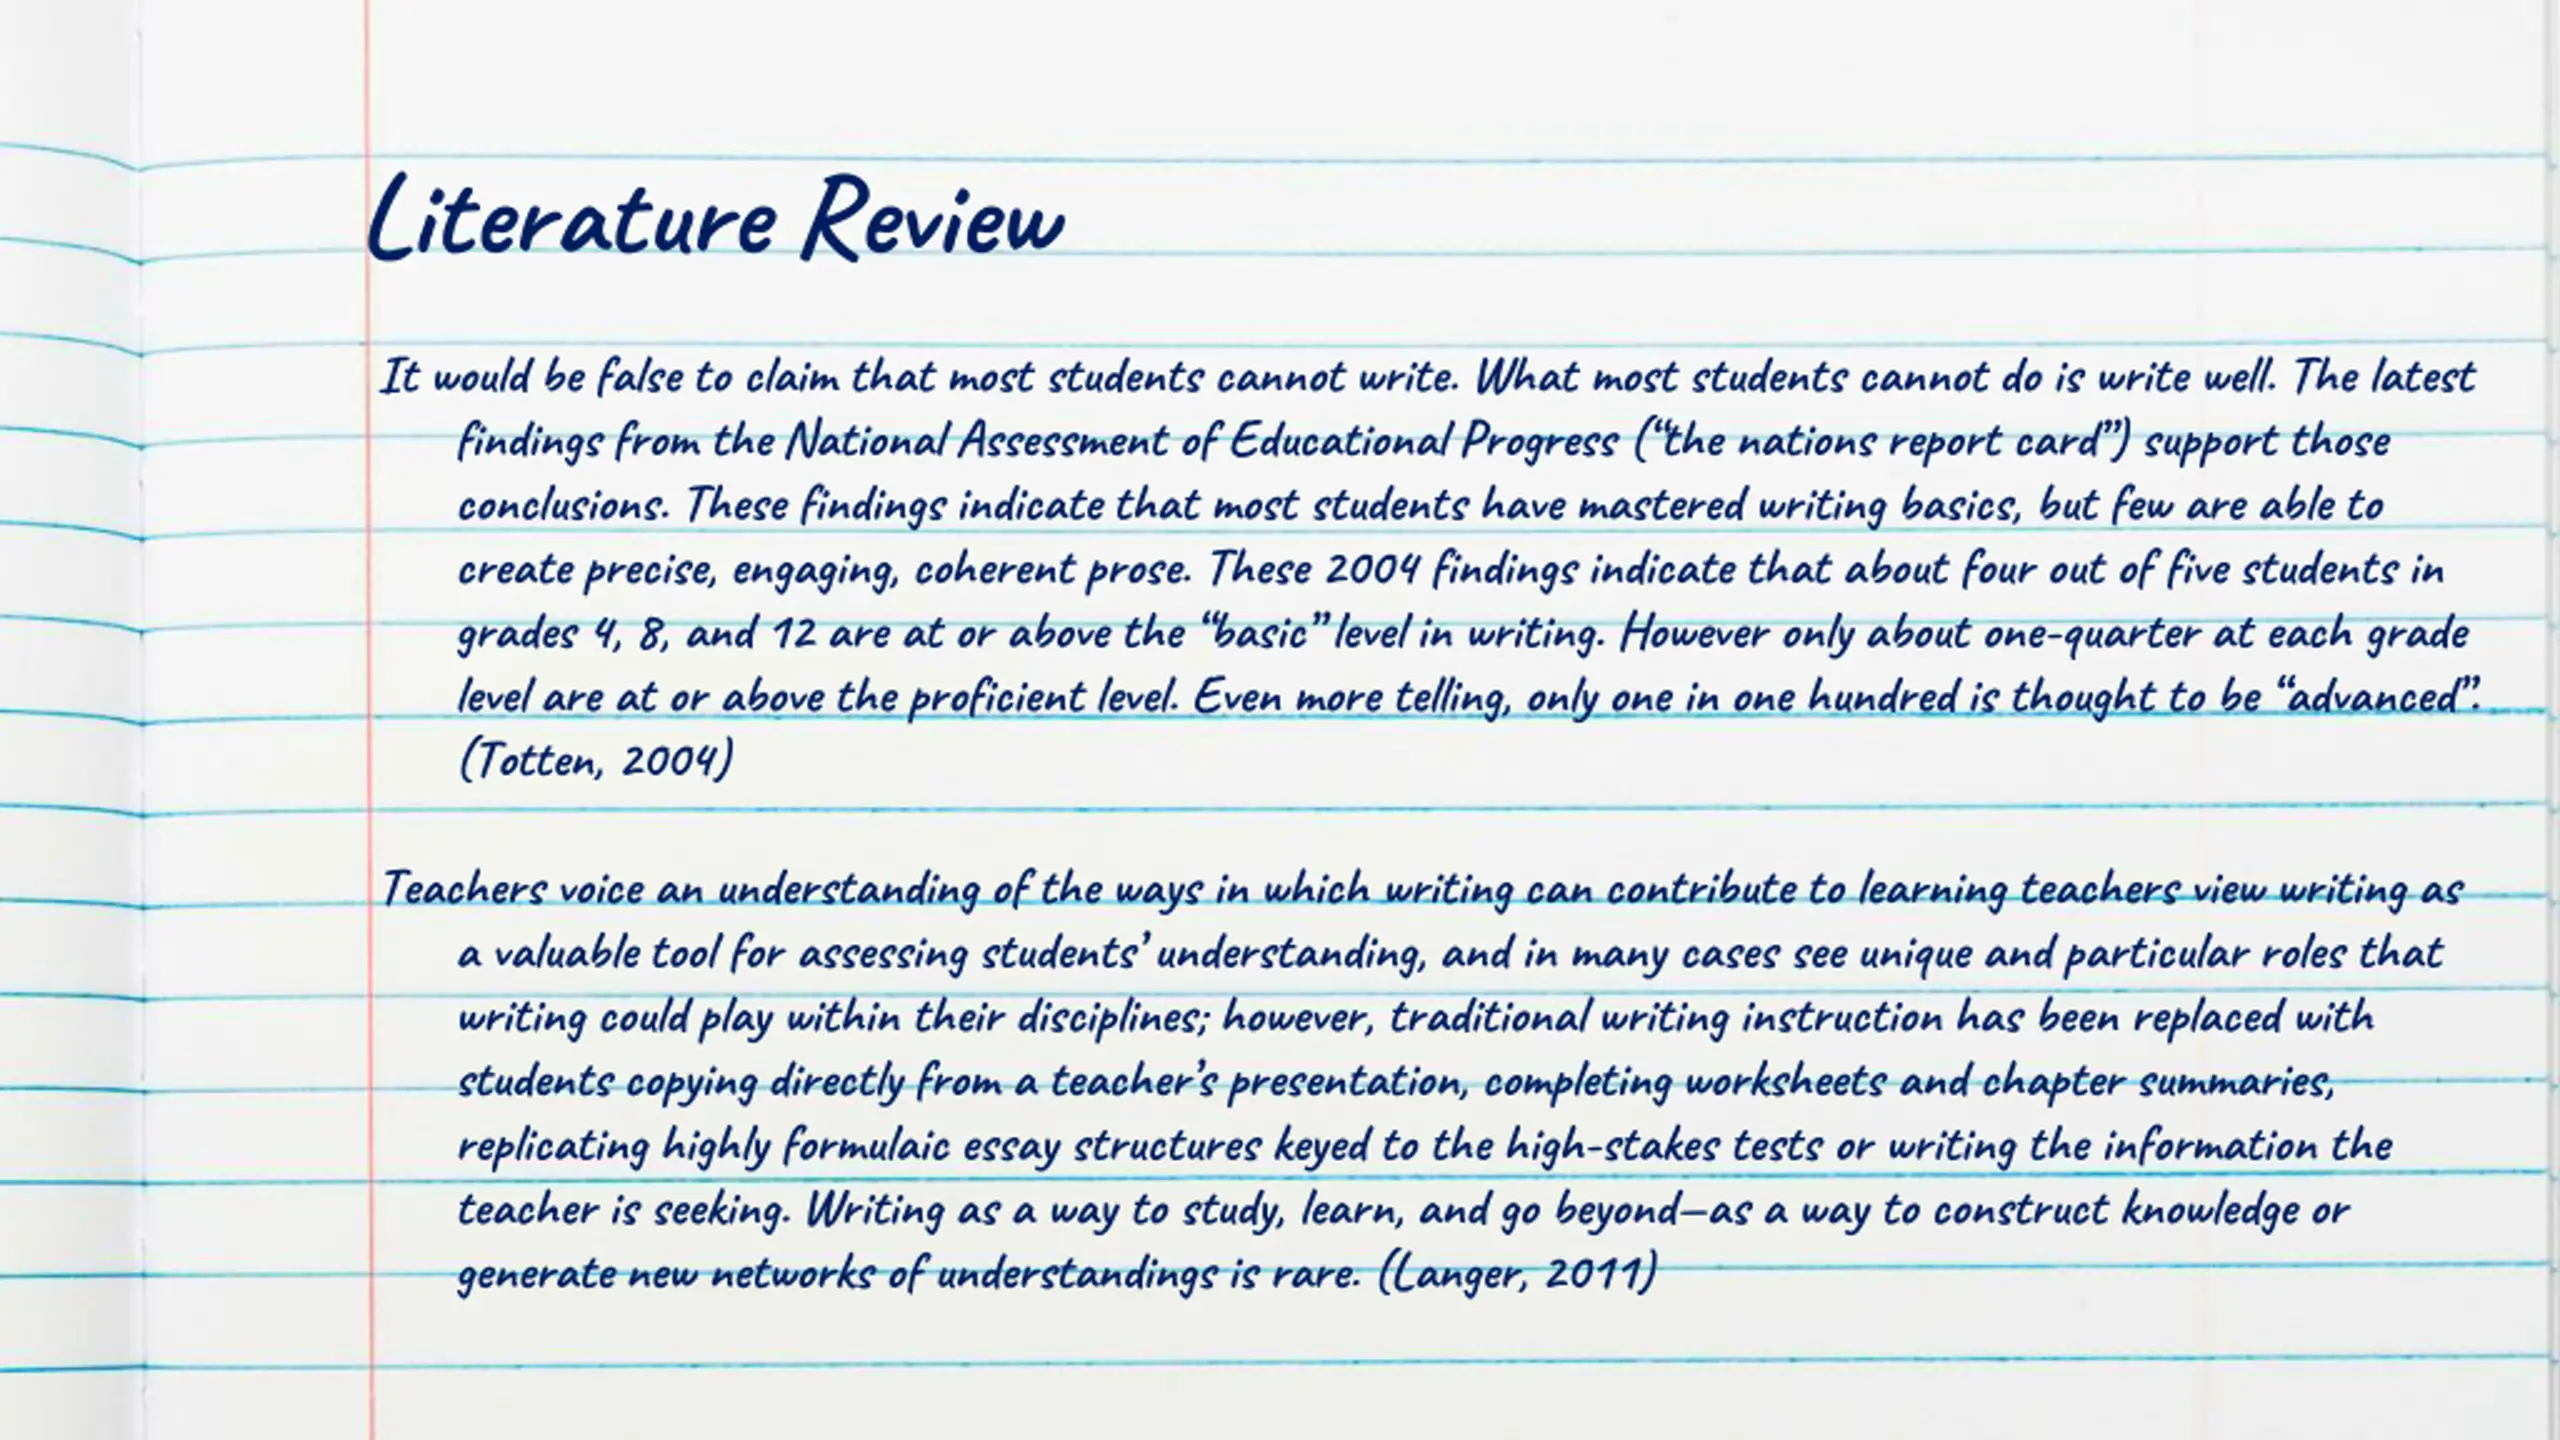 Literature Review
It would be false to claim that most students cannot write. What most students cannot do is write well. The latest
findings from the National Assessment of Educational Progress (“the nations report card”) support those
conclusions. These findings indicate that most students have mastered writing basics, but few are able to
create precise, engaging, coherent prose. These 2004 findings indicate that about four out of five students in
grades 4, 8, and 12 are at or above the “basic” level in writing. However only about one-quarter at each grade
level are at or above the proficient level. Even more telling, only one in one hundred is thought to be “advanced”.
(Totten, 2004)
Teachers voice an understanding of the ways in which writing can contribute to learning teachers view writing as
a valuable tool for assessing students’ understanding, and in many cases see unique and particular roles that
writing could play within their disciplines; however, traditional writing instruction has been replaced with
students copying directly from a teacher’s presentation, completing worksheets and chapter summaries,
replicating highly formulaic essay structures keyed to the high-stakes tests or writing the information the
teacher is seeking. Writing as a way to study, learn, and go beyond—as a way to construct knowledge or
generate new networks of understandings is rare. (Langer, 2011)